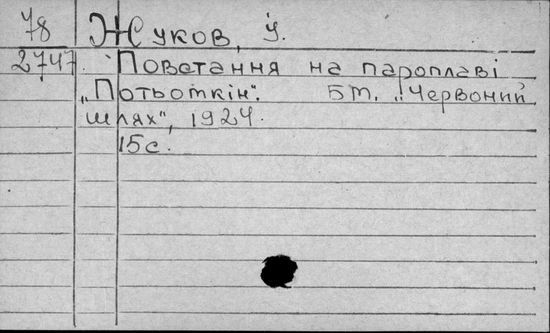 78 Жуков, У.
2747. Повстання на пароплаві
„Потьоткін". БМ. „Червоний
шлях", 1924.
15с.